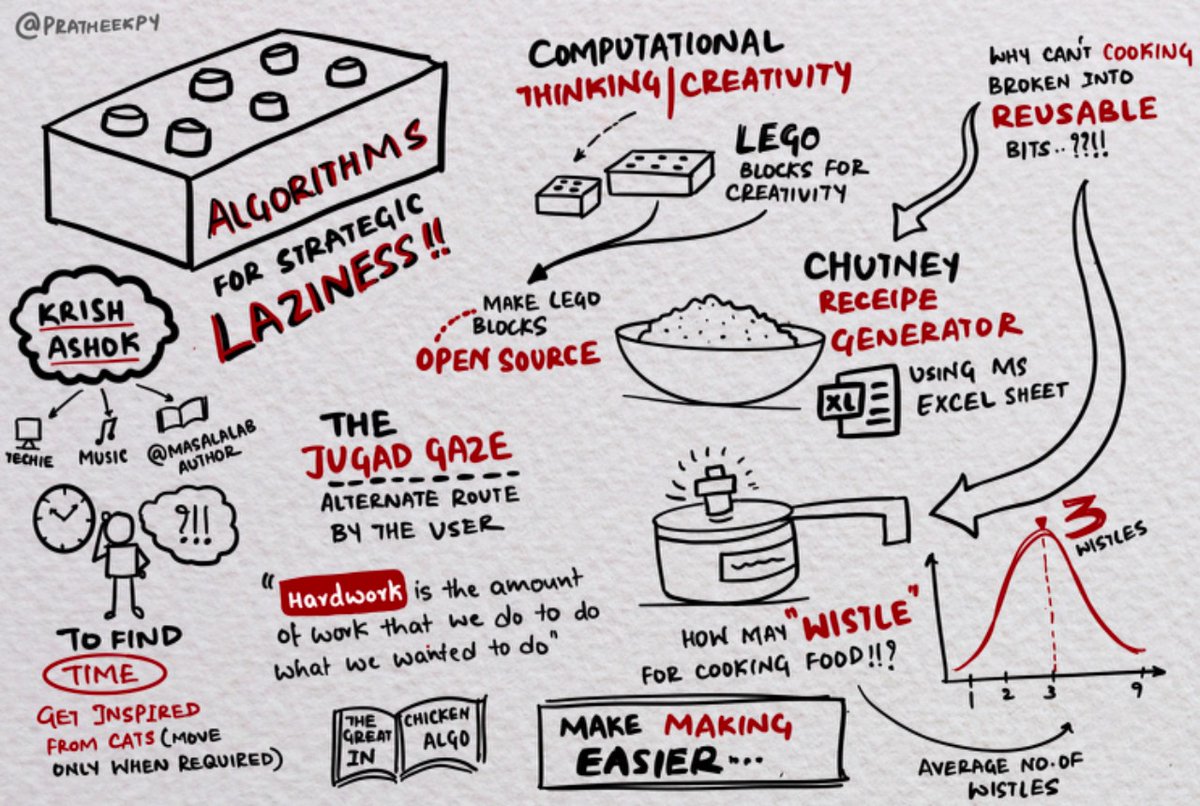 @PRATHEEKPY
ALGORITHMS
FOR STRATEGIC
LAZINESS!!
KRISH
ASHOK
TECHIE
MUSIC
@MASALALAB
AUTHOR
?!!
TO FIND
TIME
GET INSPIRED
FROM CATS (MOVE
ONLY WHEN REQUIRED)
COMPUTATIONAL
THINKING/CREATIVITY
LEGO
BLOCKS FOR
CREATIVITY
MAKE LEGO
BLOCKS
OPEN SOURCE
THE
JUGAD GAZE
ALTERNATE ROUTE
BY THE USER
"Hardwork is the amount
of work that we do to do
what we wanted to do"
THE
GREAT
IN
CHICKEN
ALGO
WHY CAN'T COOKING
BROKEN INTO
REUSABLE
BITS..??!!
CHUTNEY
RECEIPE
GENERATOR
XL
USING MS
EXCEL SHEET
HOW MAY "WISTLE"
FOR COOKING FOOD!!?
3
WISTLES
1 2 3 9
AVERAGE NO.OF
WISTLES
MAKE MAKING
EASIER....